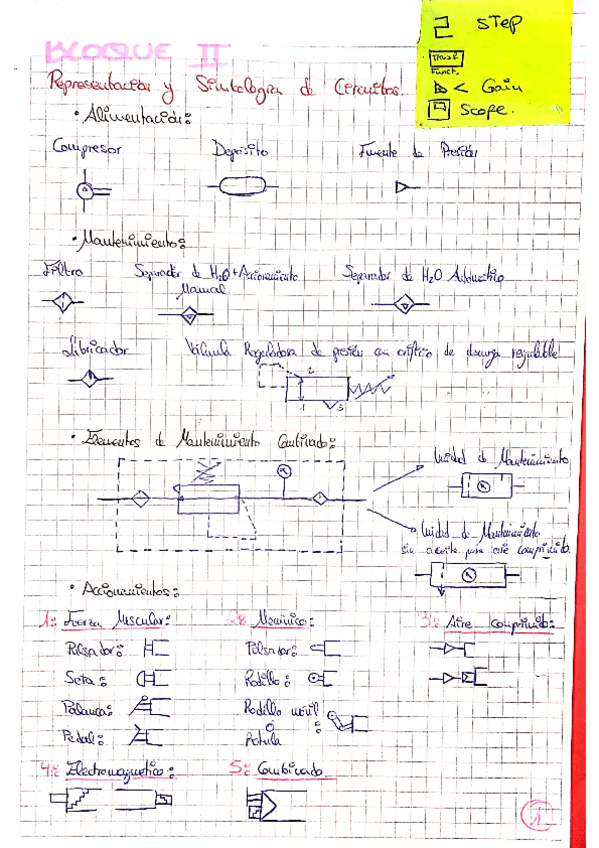 BLOQUE II
Representación y Simbología de Circuitos.
STep
Transf.
Funct.
< Gain
Scope.
• Alimentación:
Compresor Depósito Fuente de Presión
• Mantenimiento:
Filtro Separador de H2O + Accionamiento Manual Separador de H2O Automático
Lubricador Válvula Reguladora de presión con orificio de descarga regulable
2
1 3
• Elementos de Mantenimiento Combinado:
Unidad de Mantenimiento
Unidad de Mantenimiento
sin aceite para aire comprimido.
• Accionamientos:
1: Fuerza Muscular: 2: Mecánico: 3: Aire comprimido:
Pulsador: Pulsador:
Seta: Rodillo:
Palanca: Rodillo móvil
o :
Pedal: Rótula
4: Electromagnético: 5: Combinado
1